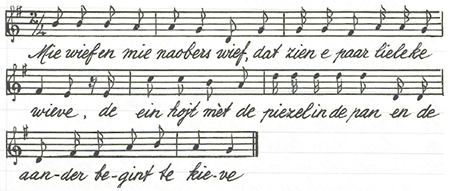 Mie wief en mie naobers wief, dat zien e paar lieleke
wieve, de ein hojt mèt de piezel in de pan en de
aan-der be-gint te kie-ve